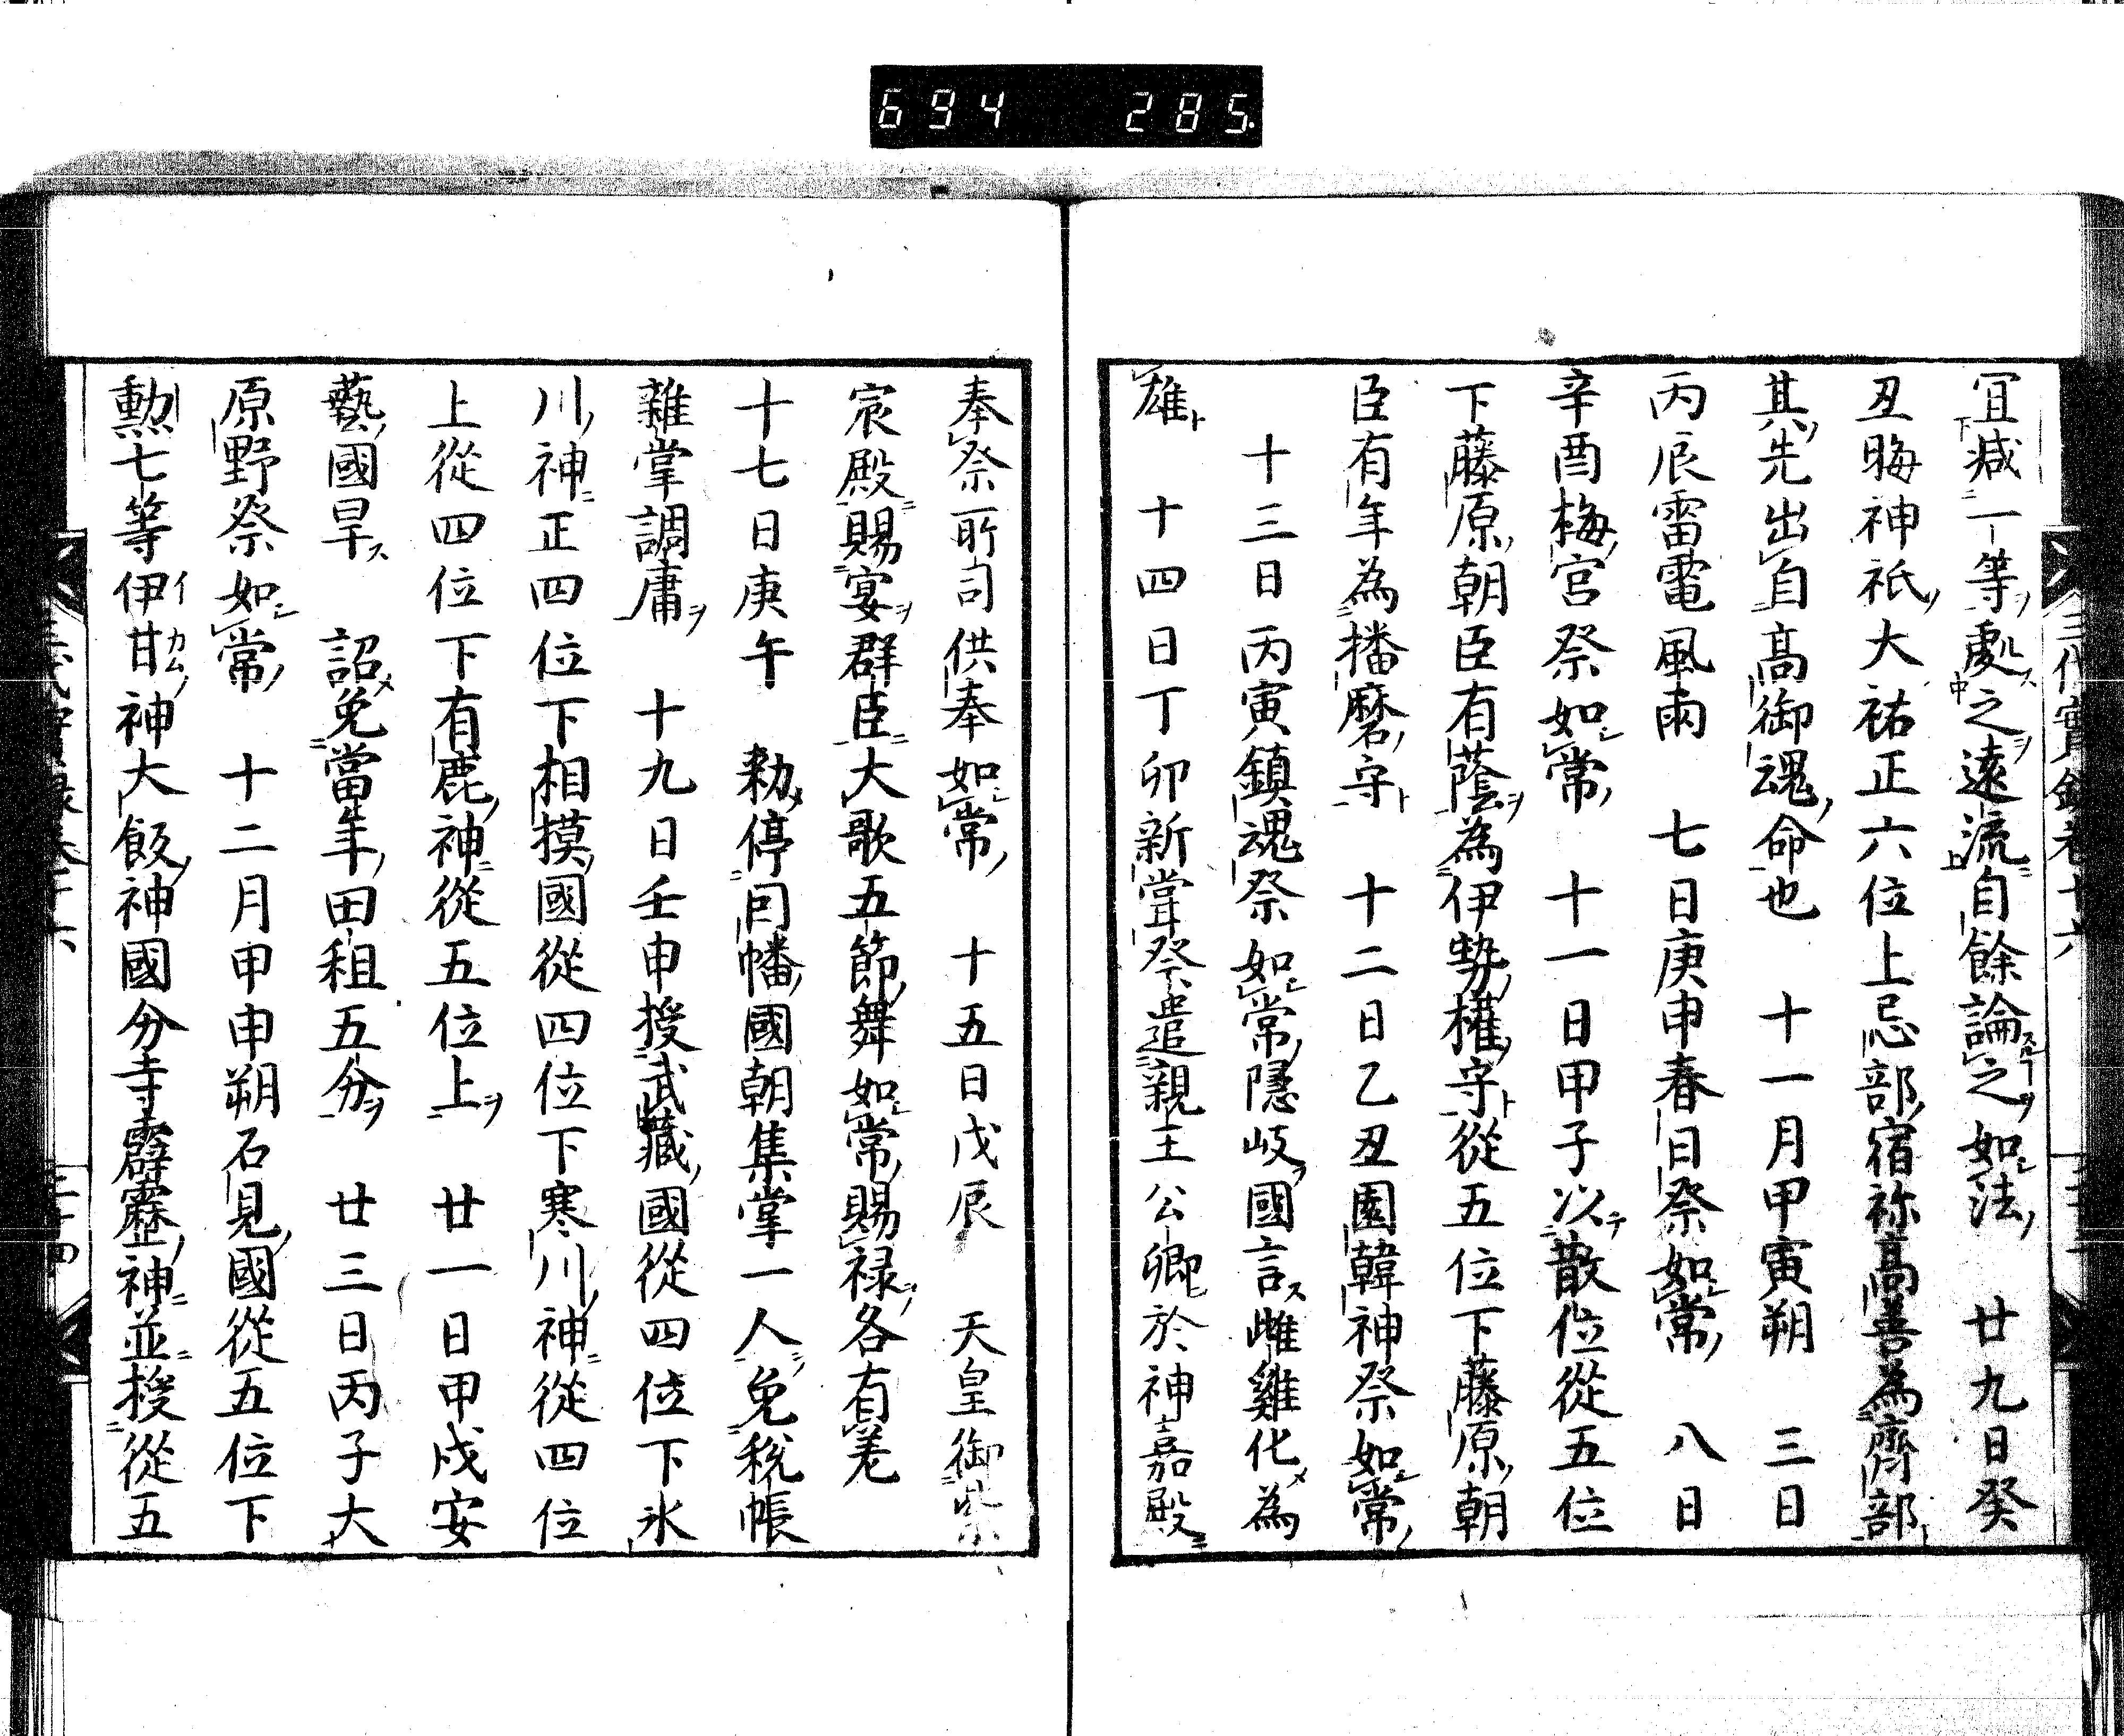 694 285
宜減一等處之遠流自餘論之如法　廿九日癸
丑晦神祇大祐正六位上忌部宿祢高善為齊部
其先出自高御魂命也　十一月甲寅朔　三日
丙辰雷電風雨　七日庚申春日祭如常　八日
辛酉梅宮祭如常　十一日甲子以散位從五位
下藤原朝臣有蔭為伊勢權守從五位下藤原朝
臣有年為播磨守　十二日乙丑園韓神祭如常
十三日丙寅鎮魂祭如常隱岐國言雌雞化為
雄　十四日丁卯新甞祭遣親王公卿於神嘉殿
奉祭所司供奉如常　十五日戊辰　天皇御紫
宸殿賜宴群臣大歌五節舞如常賜禄各有差
十七日庚午　勑停囙幡國朝集掌一人免税帳
雜掌調庸　十九日壬申授武藏國從四位下氷
川神正四位下相摸國從四位下寒川神從四位
上從四位下有鹿神從五位上　廿一日甲戌安
藝國旱　詔免當年田租五分　廿三日丙子大
原野祭如常　十二月甲申朔石見國從五位下
勲七等伊甘神大飯神國分寺霹靂神並授從五